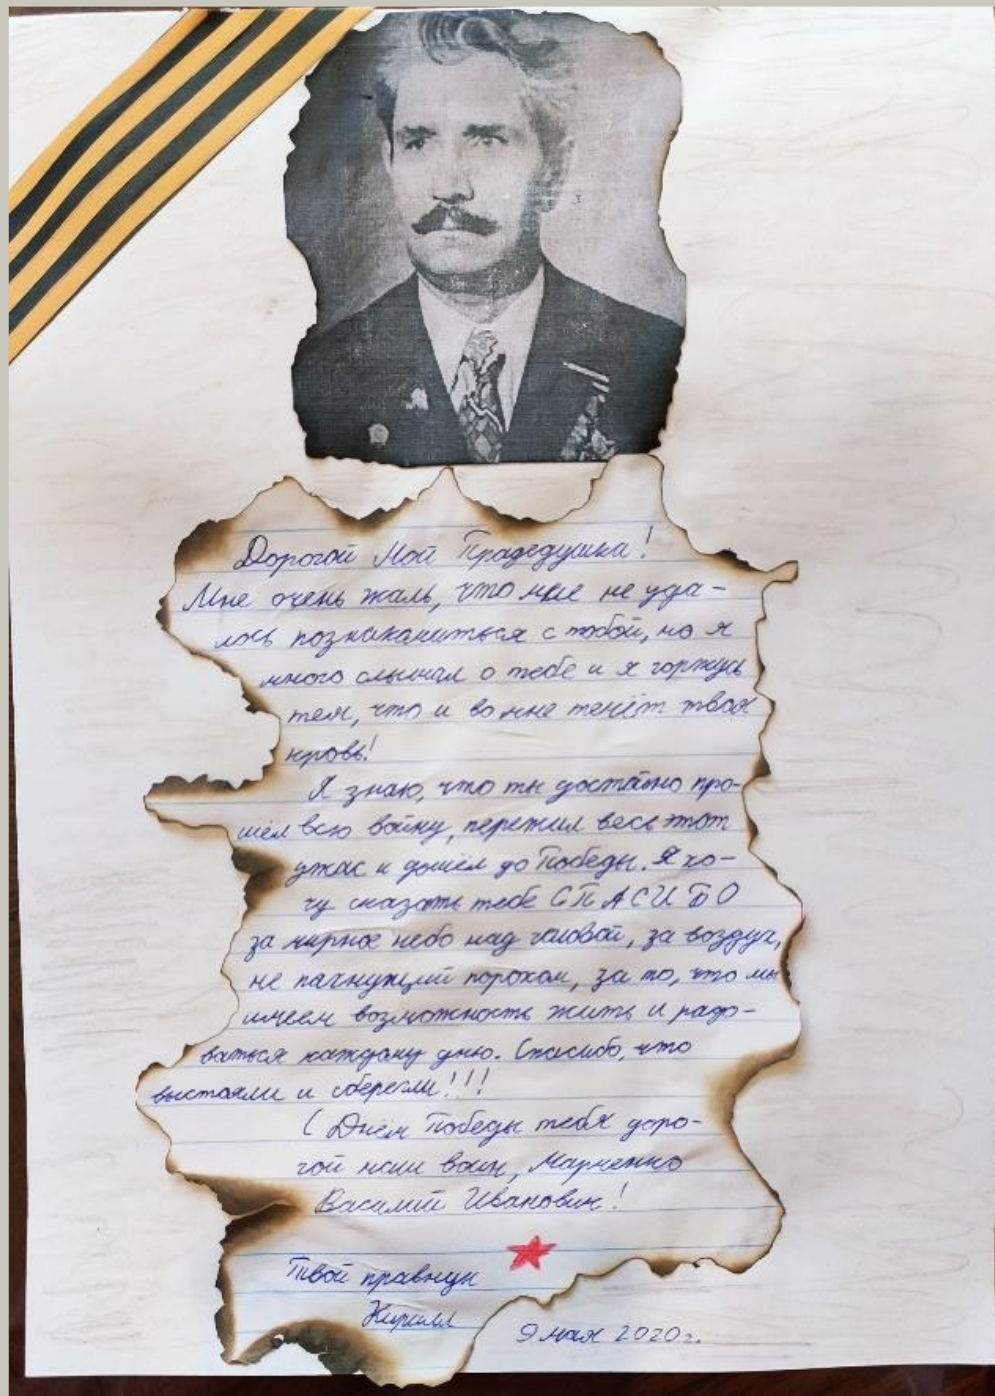 Дорогой Мой Прадедушка!
Мне очень жаль, что мне не уда-
лось познакомиться с тобой, но я
много слышал о тебе и я горжусь
тем, что и во мне течёт твоя
кровь!
Я знаю, что ты достойно про-
шёл всю войну, пережил весь этот
ужас и дошёл до Победы. Я хо-
чу сказать тебе СПАСИБО
за мирное небо над головой, за воздух,
не пахнущий порохом, за то, что мы
имеем возможность жить и радо-
ваться каждому дню. Спасибо, что
выстояли и сберегли!!!
С Днём Победы тебя доро-
гой наш воин, Марченко
Василий Иванович!
Твой правнук
Кирилл
9 мая 2020г.